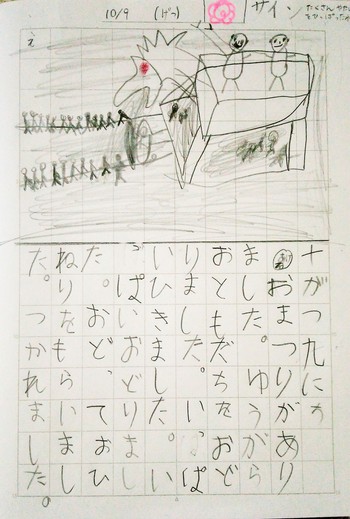 10/9 (げつ)
サイン
え
十がつ九にち
おまつりがあり
ました。ゆうがら
おともだちをおど
りました。いっぱ
いひきました。い
っぱいおどりまし
た。おどって、おひ
ねりをもらいまし
た。つかれました。